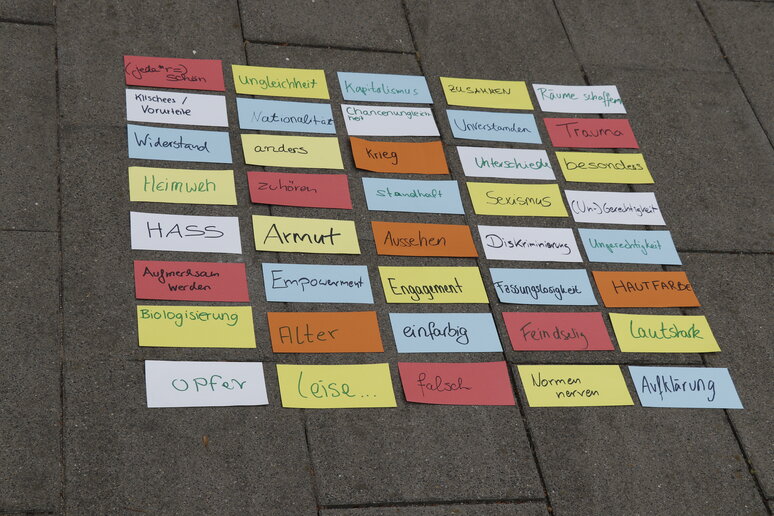 (jeda*r=) schön
Ungleichheit
Kapitalismus
ZUSAMMEN
Räume schaffen
Klischees /
Vorurteile
Nationalität
Chancenungleich
heit
Unverstanden
Trauma
Widerstand
anders
Krieg
Unterschiede
besonders
Heimweh
zuhören
standhaft
Sexismus
(Un-)Gerechtigkeit
HASS
Armut
Aussehen
Diskriminierung
Ungerechtigkeit
Aufmerksam
werden
Empowerment
Engagement
Fassungslosigkeit
HAUTFARBE
Biologisierung
Alter
einfarbig
Feindselig
Lautstark
Opfer
leise...
falsch
Normen
nerven
Aufklärung